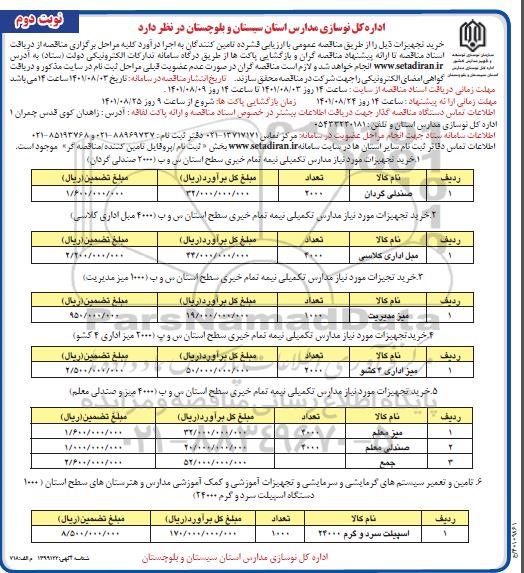 نوبت دوم
اداره کل نوسازی مدارس استان سیستان و بلوچستان در نظر دارد
خرید تجهیزات ذیل را از طریق مناقصه عمومی با ارزیابی فشرده تامین کنندگان به اجرا درآورد کلیه مراحل برگزاری مناقصه از دریافت
اسناد مناقصه تا ارائه پیشنهاد مناقصه گران و بازگشایی پاکت ها از طریق درگاه سامانه تدارکات الکترونیکی دولت (ستاد) به آدرس
www.setadiran.ir انجام خواهد شد و لازم است مناقصه گران در صورت عدم عضویت قبلی مراحل ثبت نام در سایت مذکور و دریافت
گواهی امضای الکترونیکی را جهت شرکت در مناقصه محقق سازند. تاریخ انتشار مناقصه در سامانه: تاریخ ۱۴۰۱/۰۸/۰۳ ساعت ۱۴ می باشد
مهلت زمانی دریافت اسناد مناقصه از سایت: ساعت ۱۴ روز ۱۴۰۱/۰۸/۰۳ تا ساعت ۱۴ روز ۱۴۰۱/۰۸/۰۹
مهلت زمانی ارائه پیشنهاد: ساعت ۱۴ روز ۱۴۰۱/۰۸/۲۴ زمان بازگشایی پاکت ها: شروع از ساعت ۹ روز ۱۴۰۱/۰۸/۲۵
اطلاعات تماس دستگاه مناقصه گذار جهت دریافت اطلاعات بیشتر در خصوص اسناد مناقصه و ارائه پاکت لفافه: آدرس: زاهدان کوی قدس چمران ۱
اداره کل نوسازی مدارس استان و تلفن: ۰۵۴۳۳۲۳۰۱۸۱
اطلاعات سامانه ستاد جهت انجام مراحل عضویت در سامانه: مرکز تماس ۱۳۷۱۷۱۷۱-۰۲۱ دفتر ثبت نام: ۸۸۹۶۹۷۳۷-۰۲۱ و ۸۵۱۹۳۷۶۸-۰۲۱
اطلاعات تماس دفاتر ثبت نام سایر استان ها در سایت سامانه www.setadiran.ir بخش «ثبت نام /پروفایل تامین کننده/مناقصه گر» موجود است.
۱.خرید تجهیزات مورد نیاز مدارس تکمیلی نیمه تمام خیری سطح استان س و ب (۲۰۰۰ صندلی گردان)
ردیف نام کالا تعداد مبلغ کل برآورد(ریال) مبلغ تضمین(ریال)
۱ صندلی گردان ۲۰۰۰ ۳۲/۰۰۰/۰۰۰/۰۰۰ ۱/۶۰۰/۰۰۰/۰۰۰
۲.خرید تجهیزات مورد نیاز مدارس تکمیلی نیمه تمام خیری سطح استان س و ب (۴۰۰۰ مبل اداری کلاسی)
ردیف نام کالا تعداد مبلغ کل برآورد(ریال) مبلغ تضمین(ریال)
۱ مبل اداری کلاسی ۴۰۰۰ ۴۴/۰۰۰/۰۰۰/۰۰۰ ۲/۲۰۰/۰۰۰/۰۰۰
۳.خرید تجیزات مورد نیاز مدارس تکمیلی نیمه تمام خیری سطح استان س و ب (۱۰۰۰ میز مدیریت)
ردیف نام کالا تعداد مبلغ کل برآورد(ریال) مبلغ تضمین(ریال)
۱ میز مدیریت ۱۰۰۰ ۱۹/۰۰۰/۰۰۰/۰۰۰ ۹۵۰/۰۰۰/۰۰۰
ParsNamadData
۴.خرید تجهیزات مورد نیاز مدارس تکمیلی نیمه تمام خیری سطح استان س و ب (۲۰۰۰ میز اداری ۴ کشو)
ردیف نام کالا تعداد مبلغ کل برآورد(ریال) مبلغ تضمین(ریال)
۱ میز اداری ۴ کشو ۲۰۰۰ ۵۰/۰۰۰/۰۰۰/۰۰۰ ۲/۵۰۰/۰۰۰/۰۰۰
۵.خرید تجهیزات مورد نیاز مدارس تکمیلی نیمه تمام خیری سطح استان س و ب (۴۰۰۰ میز و صندلی معلم)
ردیف نام کالا تعداد مبلغ کل برآورد(ریال) مبلغ تضمین(ریال)
۱ میز معلم ۴۰۰۰ ۳۲/۰۰۰/۰۰۰/۰۰۰ ۱/۶۰۰/۰۰۰/۰۰۰
۲ صندلی معلم ۴۰۰۰ ۲۰/۰۰۰/۰۰۰/۰۰۰ ۱/۰۰۰/۰۰۰/۰۰۰
۳ جمع ۵۲/۰۰۰/۰۰۰/۰۰۰ ۲/۶۰۰/۰۰۰/۰۰۰
۰۲۱-۸۸۳۴۹۶۷۰-۵
۶. تامین و تعمیر سیستم های گرمایشی و سرمایشی و تجهیزات آموزشی و کمک آموزشی مدارس و هنرستان های سطح استان (۱۰۰۰
دستگاه اسپیلت سرد و گرم ۲۴۰۰۰)
ردیف نام کالا تعداد مبلغ کل برآورد(ریال) مبلغ تضمین(ریال)
۱ اسپیلت سرد و گرم ۲۴۰۰۰ ۱۰۰۰ ۱۷۰/۰۰۰/۰۰۰/۰۰۰ ۸/۵۰۰/۰۰۰/۰۰۰
اداره کل نوسازی مدارس استان سیستان و بلوچستان
شناسه آگهی: ۱۳۹۹۱۲۲ م الف: ۷۱۸